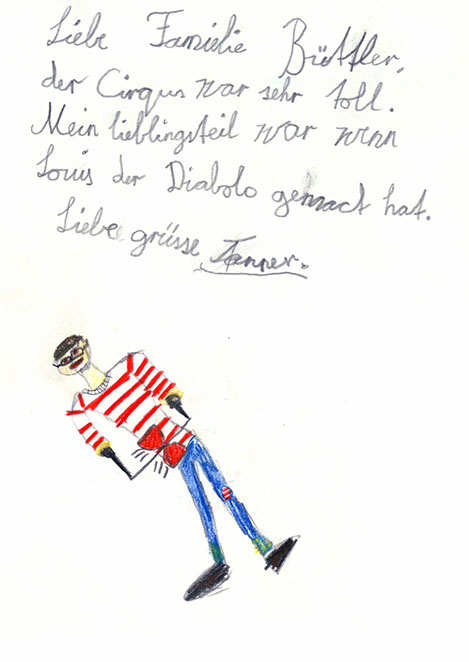 Liebe Familie Büttler,
der Cirqus war sehr toll.
Mein lieblingsteil war wenn
Louis der Diabolo gemact hat.
Liebe grüsse Tanner.